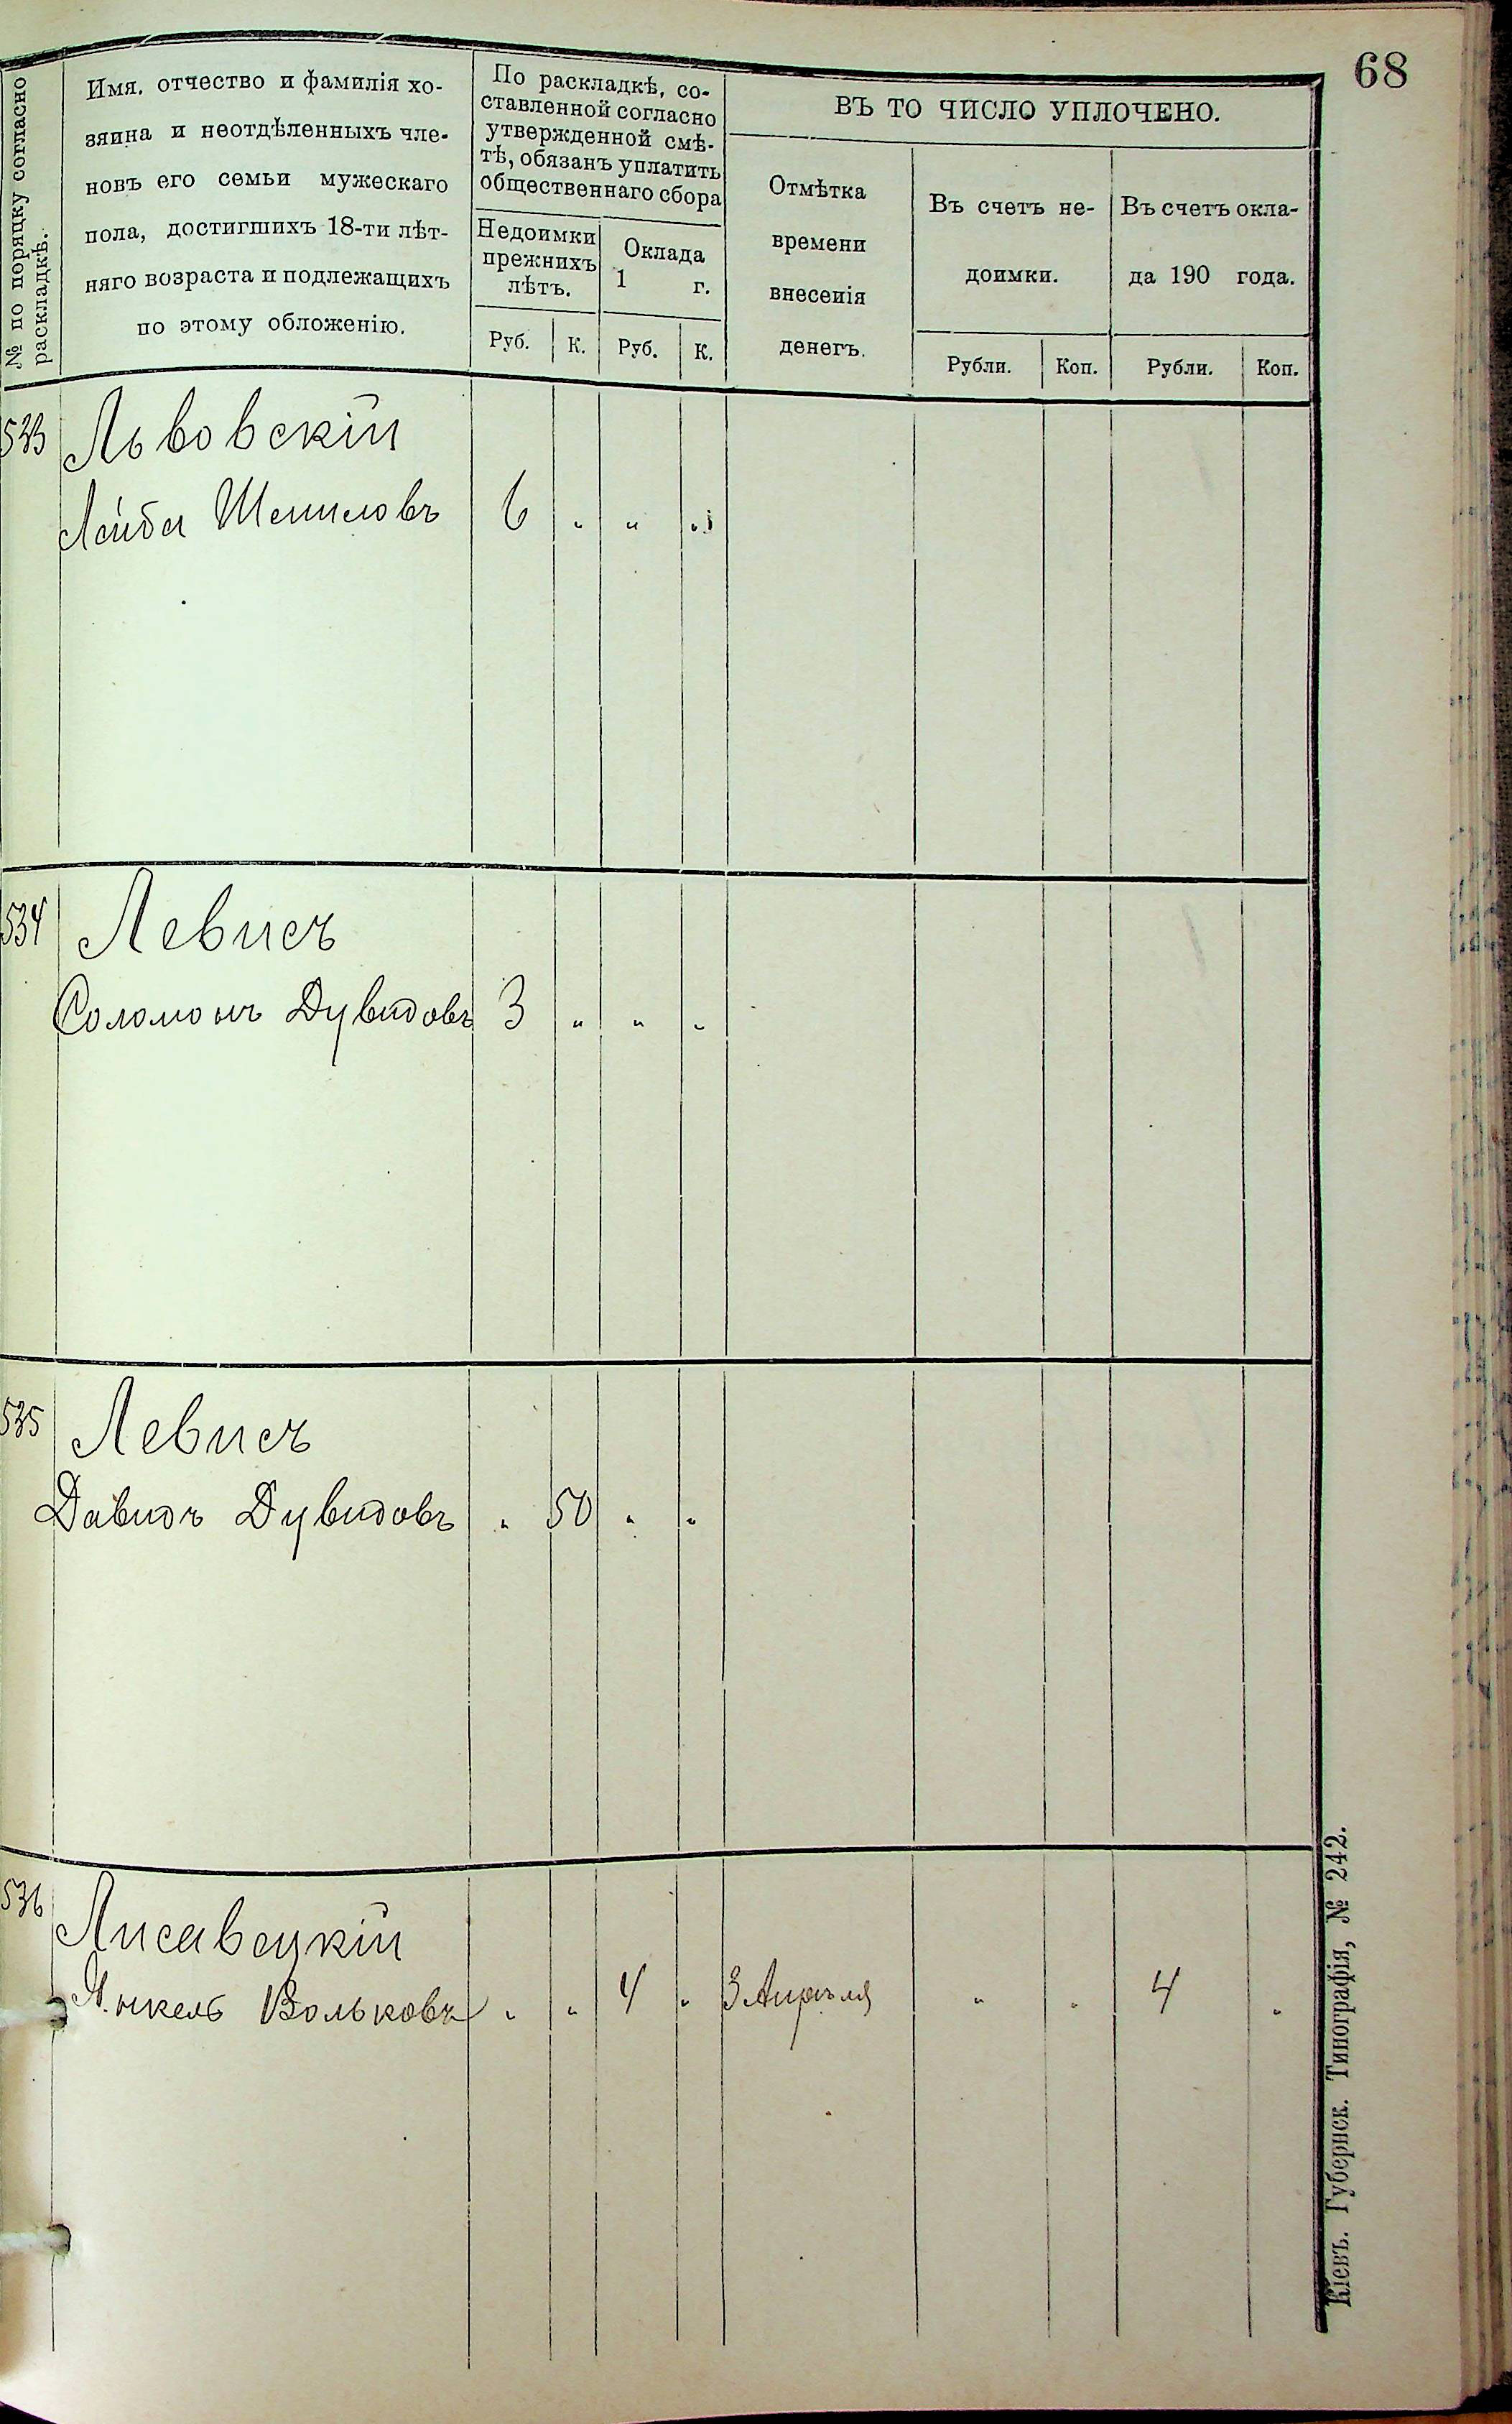 68
№ по порядку согласно раскладкѣ.
Имя, отчество и фамилія хо-
зяина и неотдѣленныхъ чле-
новъ его семьи мужескаго
пола, достигшихъ 18-ти лѣт-
няго возраста и подлежащихъ
по этому обложенію.
По раскладкѣ, со-
ставленной согласно
утвержденной смѣ-
тѣ, обязанъ уплатить
общественнаго сбора
Недоимки
прежнихъ
лѣтъ.
Оклада
1 г.
Руб. К. Руб. К.
ВЪ ТО ЧИСЛО УПЛОЧЕНО.
Отмѣтка
времени
внесенія
денегъ.
Въ счетъ не-
доимки.
Въ счетъ окла-
да 190 года.
Рубли. Коп. Рубли. Коп.
533 Львовскій
Лейба Шмиловъ 6 " " "
534 Левисъ
Соломонъ Дувидовъ 3 " " "
535 Левисъ
Давидъ Дувидовъ " 50 " "
536 Лисавецкій
Янкель Вольковъ " " 4 " 3 Апрѣля " " 4 "
Кіевъ. Губернск. Типографія, № 242.